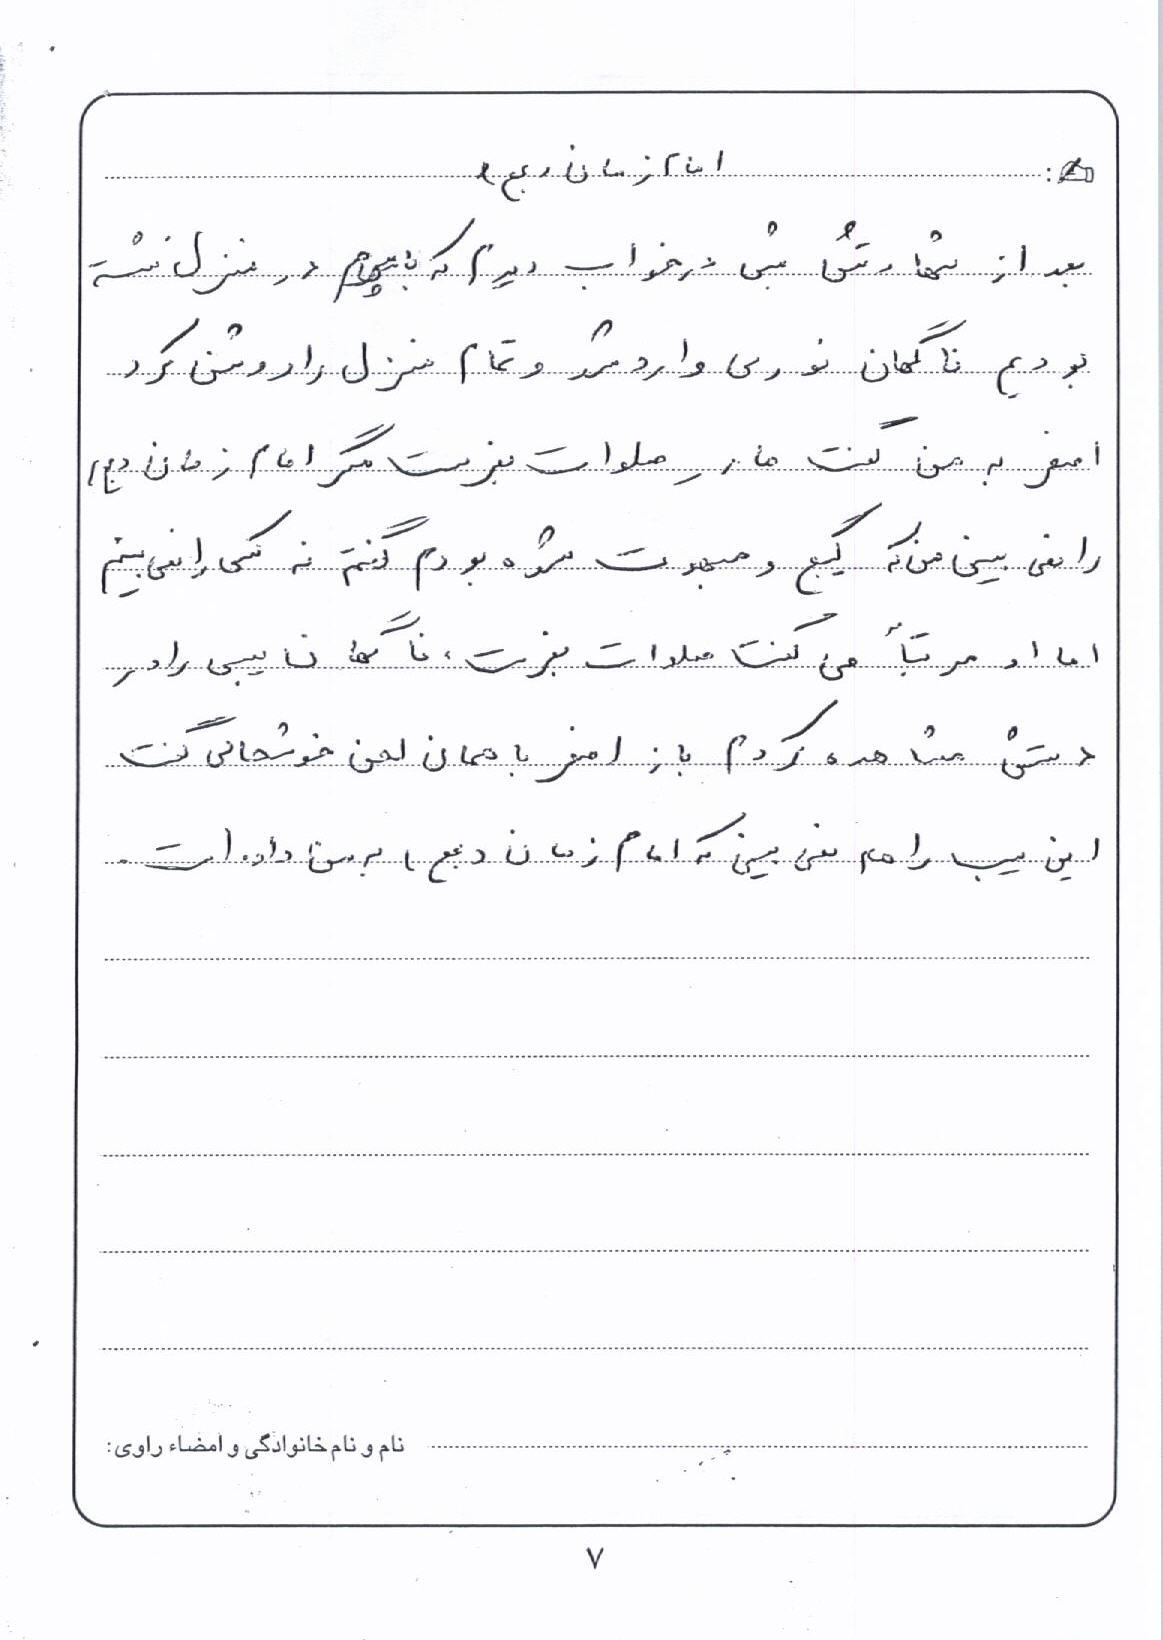 امام زمان (عج)
بعد از شهادتش شبی در خواب دیدم که با پسرم در منزل نشسته
بودیم ناگهان نوری وارد شد و تمام منزل را روشن کرد
اصغر به من گفت مادر صلوات بفرست مگر امام زمان (عج)
را نمی بینی من که گیج و مبهوت شده بودم گفتم نه کسی را نمی بینم
اما او مرتباً می گفت صلوات بفرست، ناگهان سیبی را در
دستش مشاهده کردم باز اصغر با همان لحن خوشحالی گفت
این سیب را هم نمی بینی که امام زمان (عج) به من داده است.
نام و نام خانوادگی و امضاء راوی:
۷